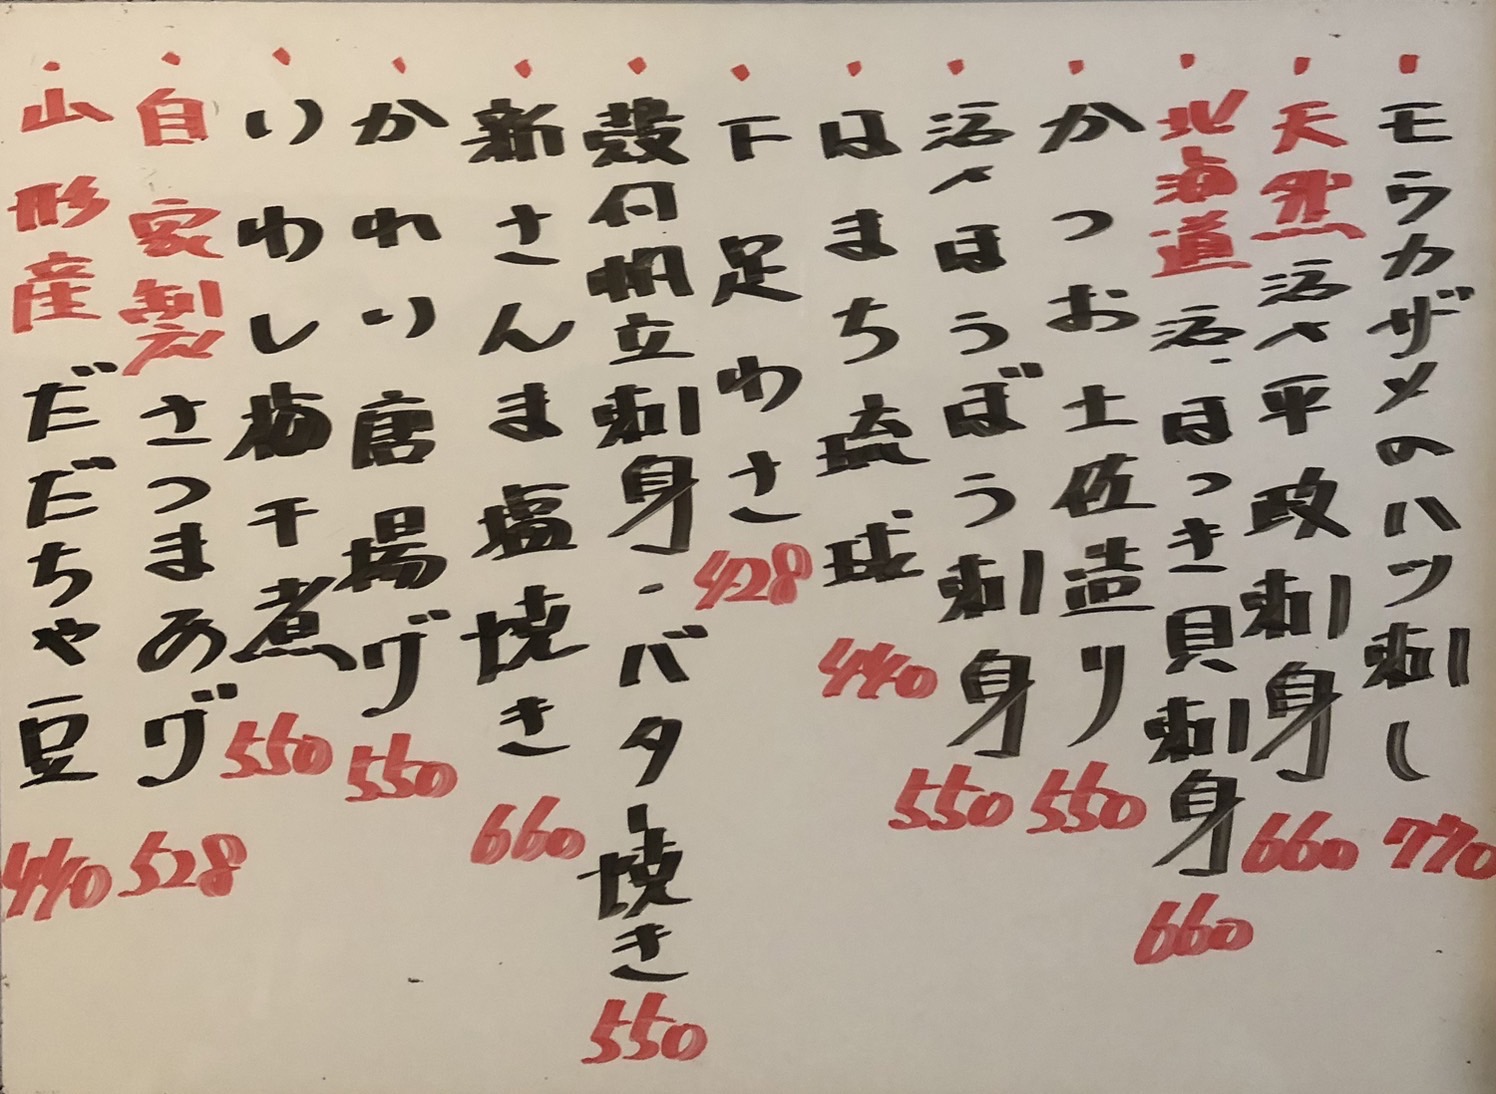 ・モウカザメのハツ刺し 770
・天然活〆平政刺身 660
・北海道活・ほっき貝刺身 660
・かつお土佐造り 550
・活〆ほうぼう刺身 550
・はまち琉球 440
・下足わさ 428
・殻付帆立刺身・バター焼き 550
・新さんま塩焼き 660
・かれい唐揚げ 550
・いわし梅干煮 550
・自家製さつまあげ 528
・山形産だだちゃ豆 440